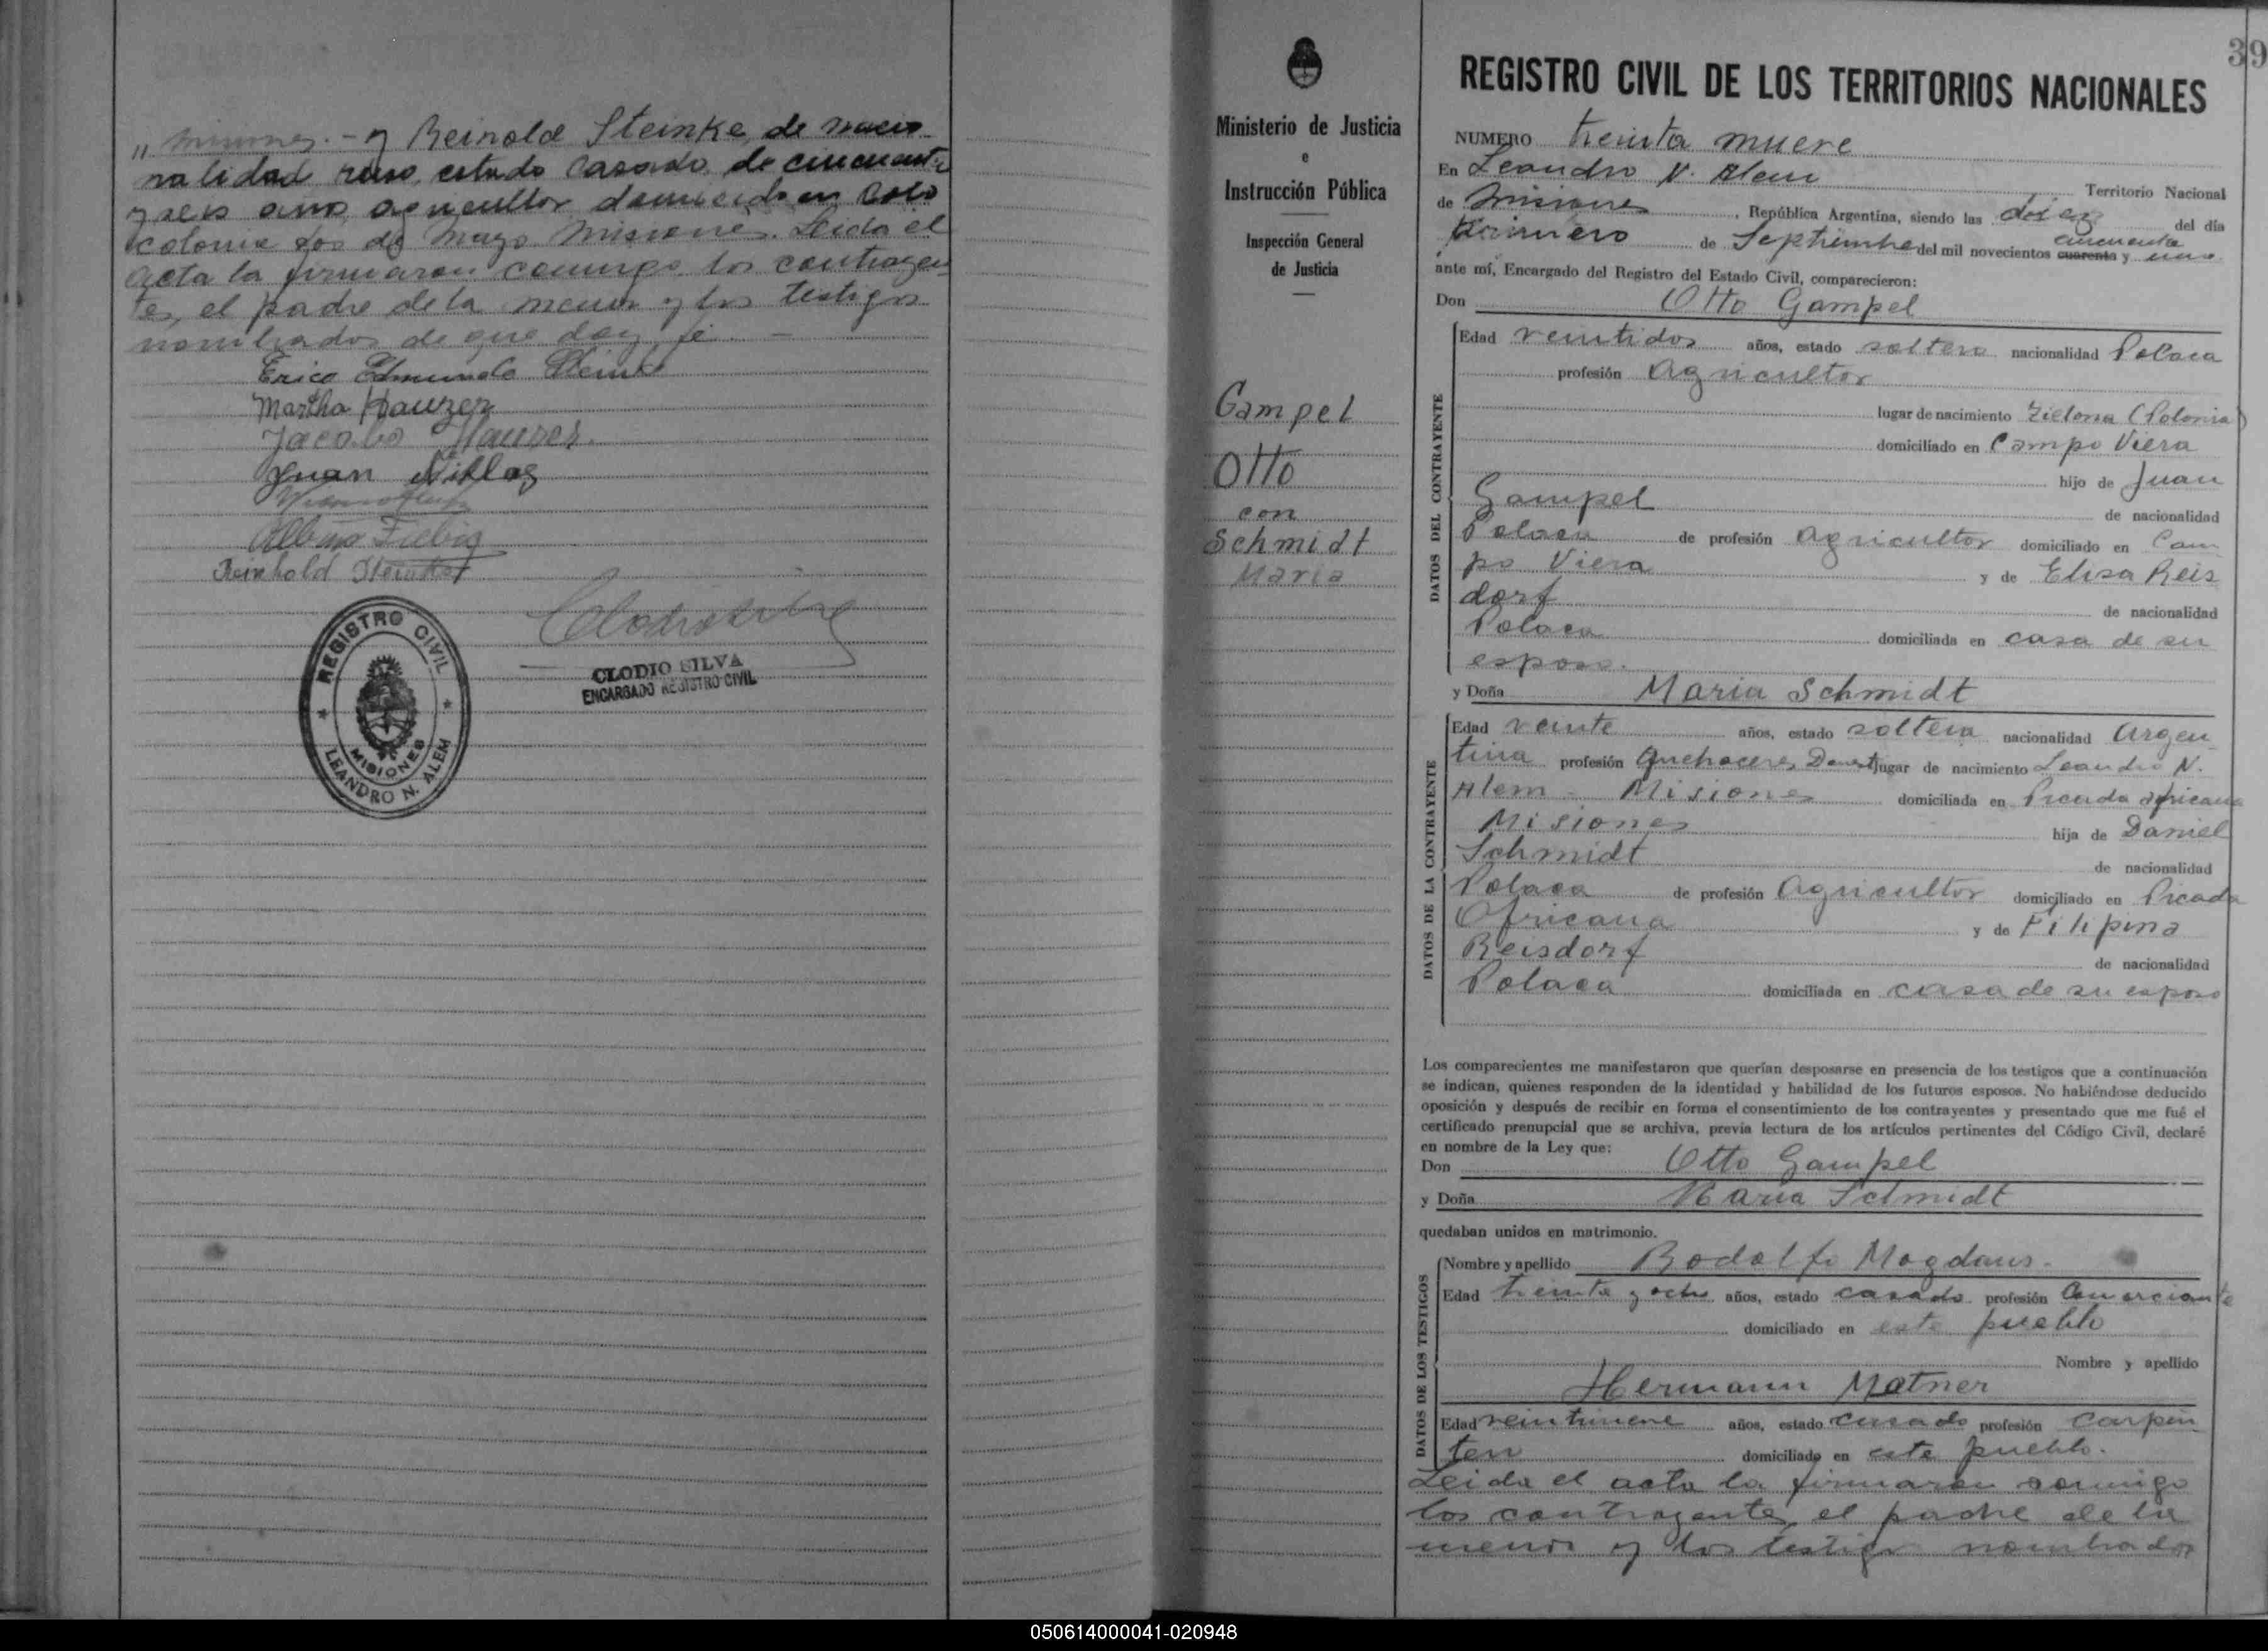 " Misiones. - y Reinold Steinke, de nacio
nalidad ruso, estado casado, de cincuenta
y seis años, agricultor domiciliado en
colonia dos de Mayo Misiones. Leida el
acta la firmaron conmigo los contrayen
tes, el padre de la menor y los testigos
nombrados de que doy fé. -
Erico Edmundo Steinke
Martha Hauzer
Jacobo Hauser
Juan Niklas
Albino Fiebig
Reinhold Steinke
REGISTRO CIVIL
MISIONES
LEANDRO N. ALEM
CLODIO SILVA
ENCARGADO REGISTRO CIVIL
Ministerio de Justicia
e
Instrucción Pública
Inspección General
de Justicia
Gampel
Otto
con
Schmidt
Maria
39
REGISTRO CIVIL DE LOS TERRITORIOS NACIONALES
NUMERO treinta nueve
En Leandro N. Alem Territorio Nacional
de Misiones, República Argentina, siendo las diez del día
primero de Septiembre del mil novecientos cuarenta cincuenta y uno
ante mí, Encargado del Registro del Estado Civil, comparecieron:
Don Otto Gampel
DATOS DEL CONTRAYENTE
Edad veintidos años, estado soltero nacionalidad Polaca
profesión Agricultor
lugar de nacimiento Zielona (Polonia)
domiciliado en Campo Viera
hijo de Juan
Gampel de nacionalidad
Polaca de profesión Agricultor domiciliado en Cam
po Viera y de Elisa Reis
dorf de nacionalidad
Polaca domiciliada en casa de su
esposo.
y Doña Maria Schmidt
DATOS DE LA CONTRAYENTE
Edad veinte años, estado soltera nacionalidad Argen
tina profesión Quehaceres Domest lugar de nacimiento Leandro N.
Alem - Misiones domiciliada en Picada africana
Misiones hija de Daniel
Schmidt de nacionalidad
Polaca de profesión Agricultor domiciliado en Picada
Africana y de Filipina
Reisdorf de nacionalidad
Polaca domiciliada en casa de su esposo
Los comparecientes me manifestaron que querían desposarse en presencia de los testigos que a continuación
se indican, quienes responden de la identidad y habilidad de los futuros esposos. No habiéndose deducido
oposición y después de recibir en forma el consentimiento de los contrayentes y presentado que me fué el
certificado prenupcial que se archiva, previa lectura de los artículos pertinentes del Código Civil, declaré
en nombre de la Ley que:
Don Otto Gampel
y Doña Maria Schmidt
quedaban unidos en matrimonio.
DATOS DE LOS TESTIGOS
Nombre y apellido Rodolfo Magdans.
Edad treinta y ocho años, estado casado profesión Comerciante
domiciliado en este pueblo
Nombre y apellido
Hermann Matner
Edad veintinueve años, estado casado profesión carpin
tero domiciliado en este pueblo.
Leida el acta la firmaron conmigo
los contrayentes, el padre de la
menor y los testigos nombrados
050614000041-020948